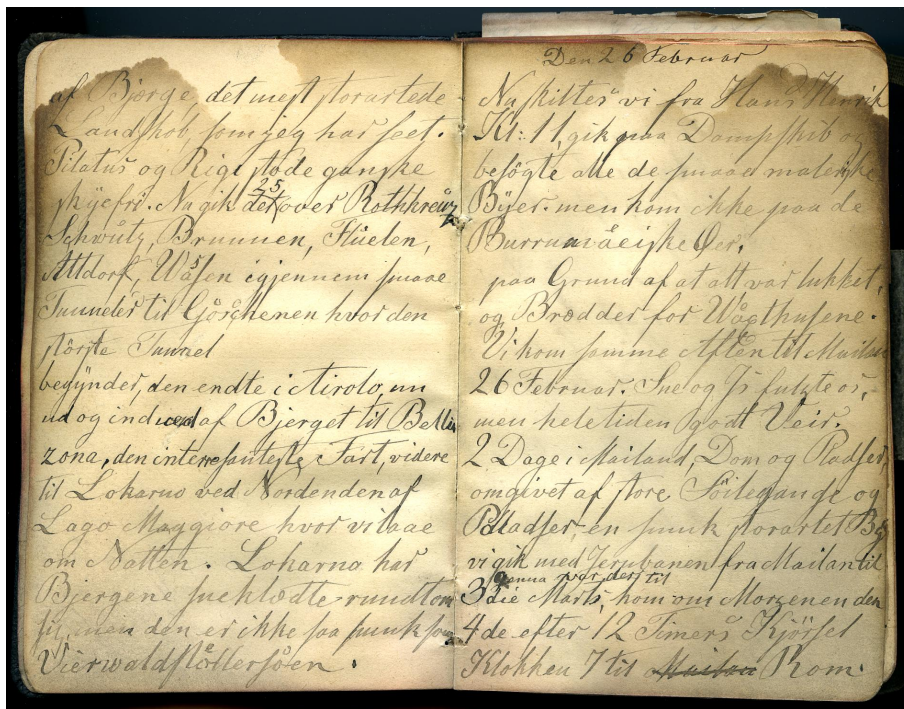 af Bjerge, det mest storartede
Landskob, som jeg har seet.
Pilatus og Rigi stode ganske
skyefri. Nu gik det 25 over Rothkreutz
Schwütz, Brunnen, Flüelen,
Altdorf, Wasen igjennem smaae
Tunneler til Göschenen hvor den
störste Tunnel
begynder, den endte i Airolo, nu
ud og ind ved af Bjerget til Bellin
zona, den interessanteste Fart, videre
til Lokarno ved Nordenden af
Lago Maggiore hvor vi laae
om Natten. Lokarno har
Bjergene sneklædte rundt om
sig, men den er ikke saa smuk som
Vierwaldstöttersöen.
Den 26 Februar
Nu skiltes vi fra Hans Henrik
Kl: 11, gik paa Dampskib og
besögte alle de smaae maleriske
Byer. men kom ikke paa de
Øer.
paa Grund af at alt var lukket,
og Brædder for Wægthusene.
Vi kom samme Aften til Mailan
26 Februar. Sne og Is fulgte os,
men hele tiden godt Veir.
2 Dage i Mailand, Dom og Pladser,
omgivet af store Söilegange og
Paladser, en smuk storartet By
vi gik med Jernbanen fra Mailan til
Genua var der til
3die Marts, kom om Morgenen den
4de efter 12 Timers Kjörsel
Klokken 7 til Mailan Rom.